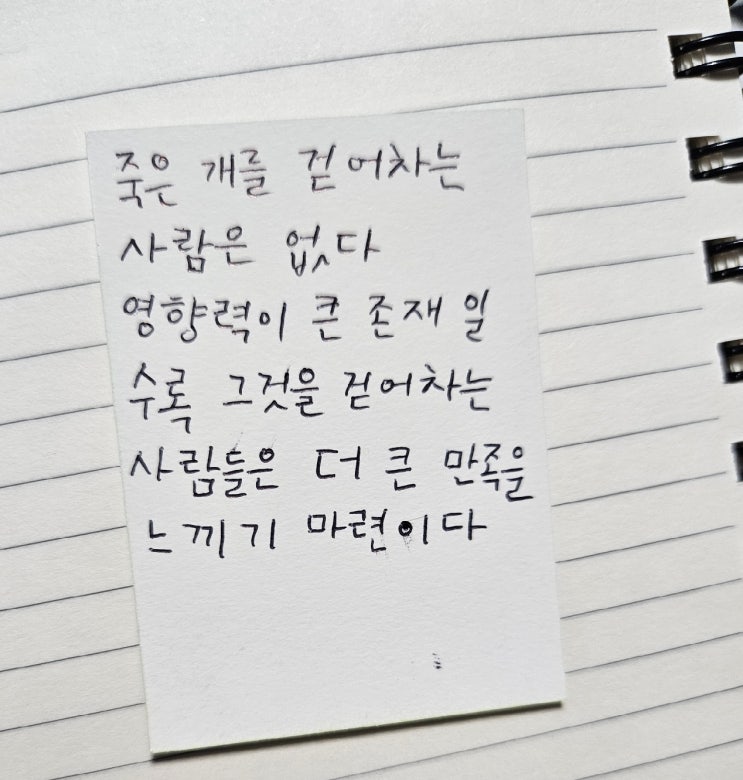 죽은 개를 걷어차는
사람은 없다
영향력이 큰 존재 일
수록 그것을 걷어차는
사람들은 더 큰 만족을
느끼기 마련이다